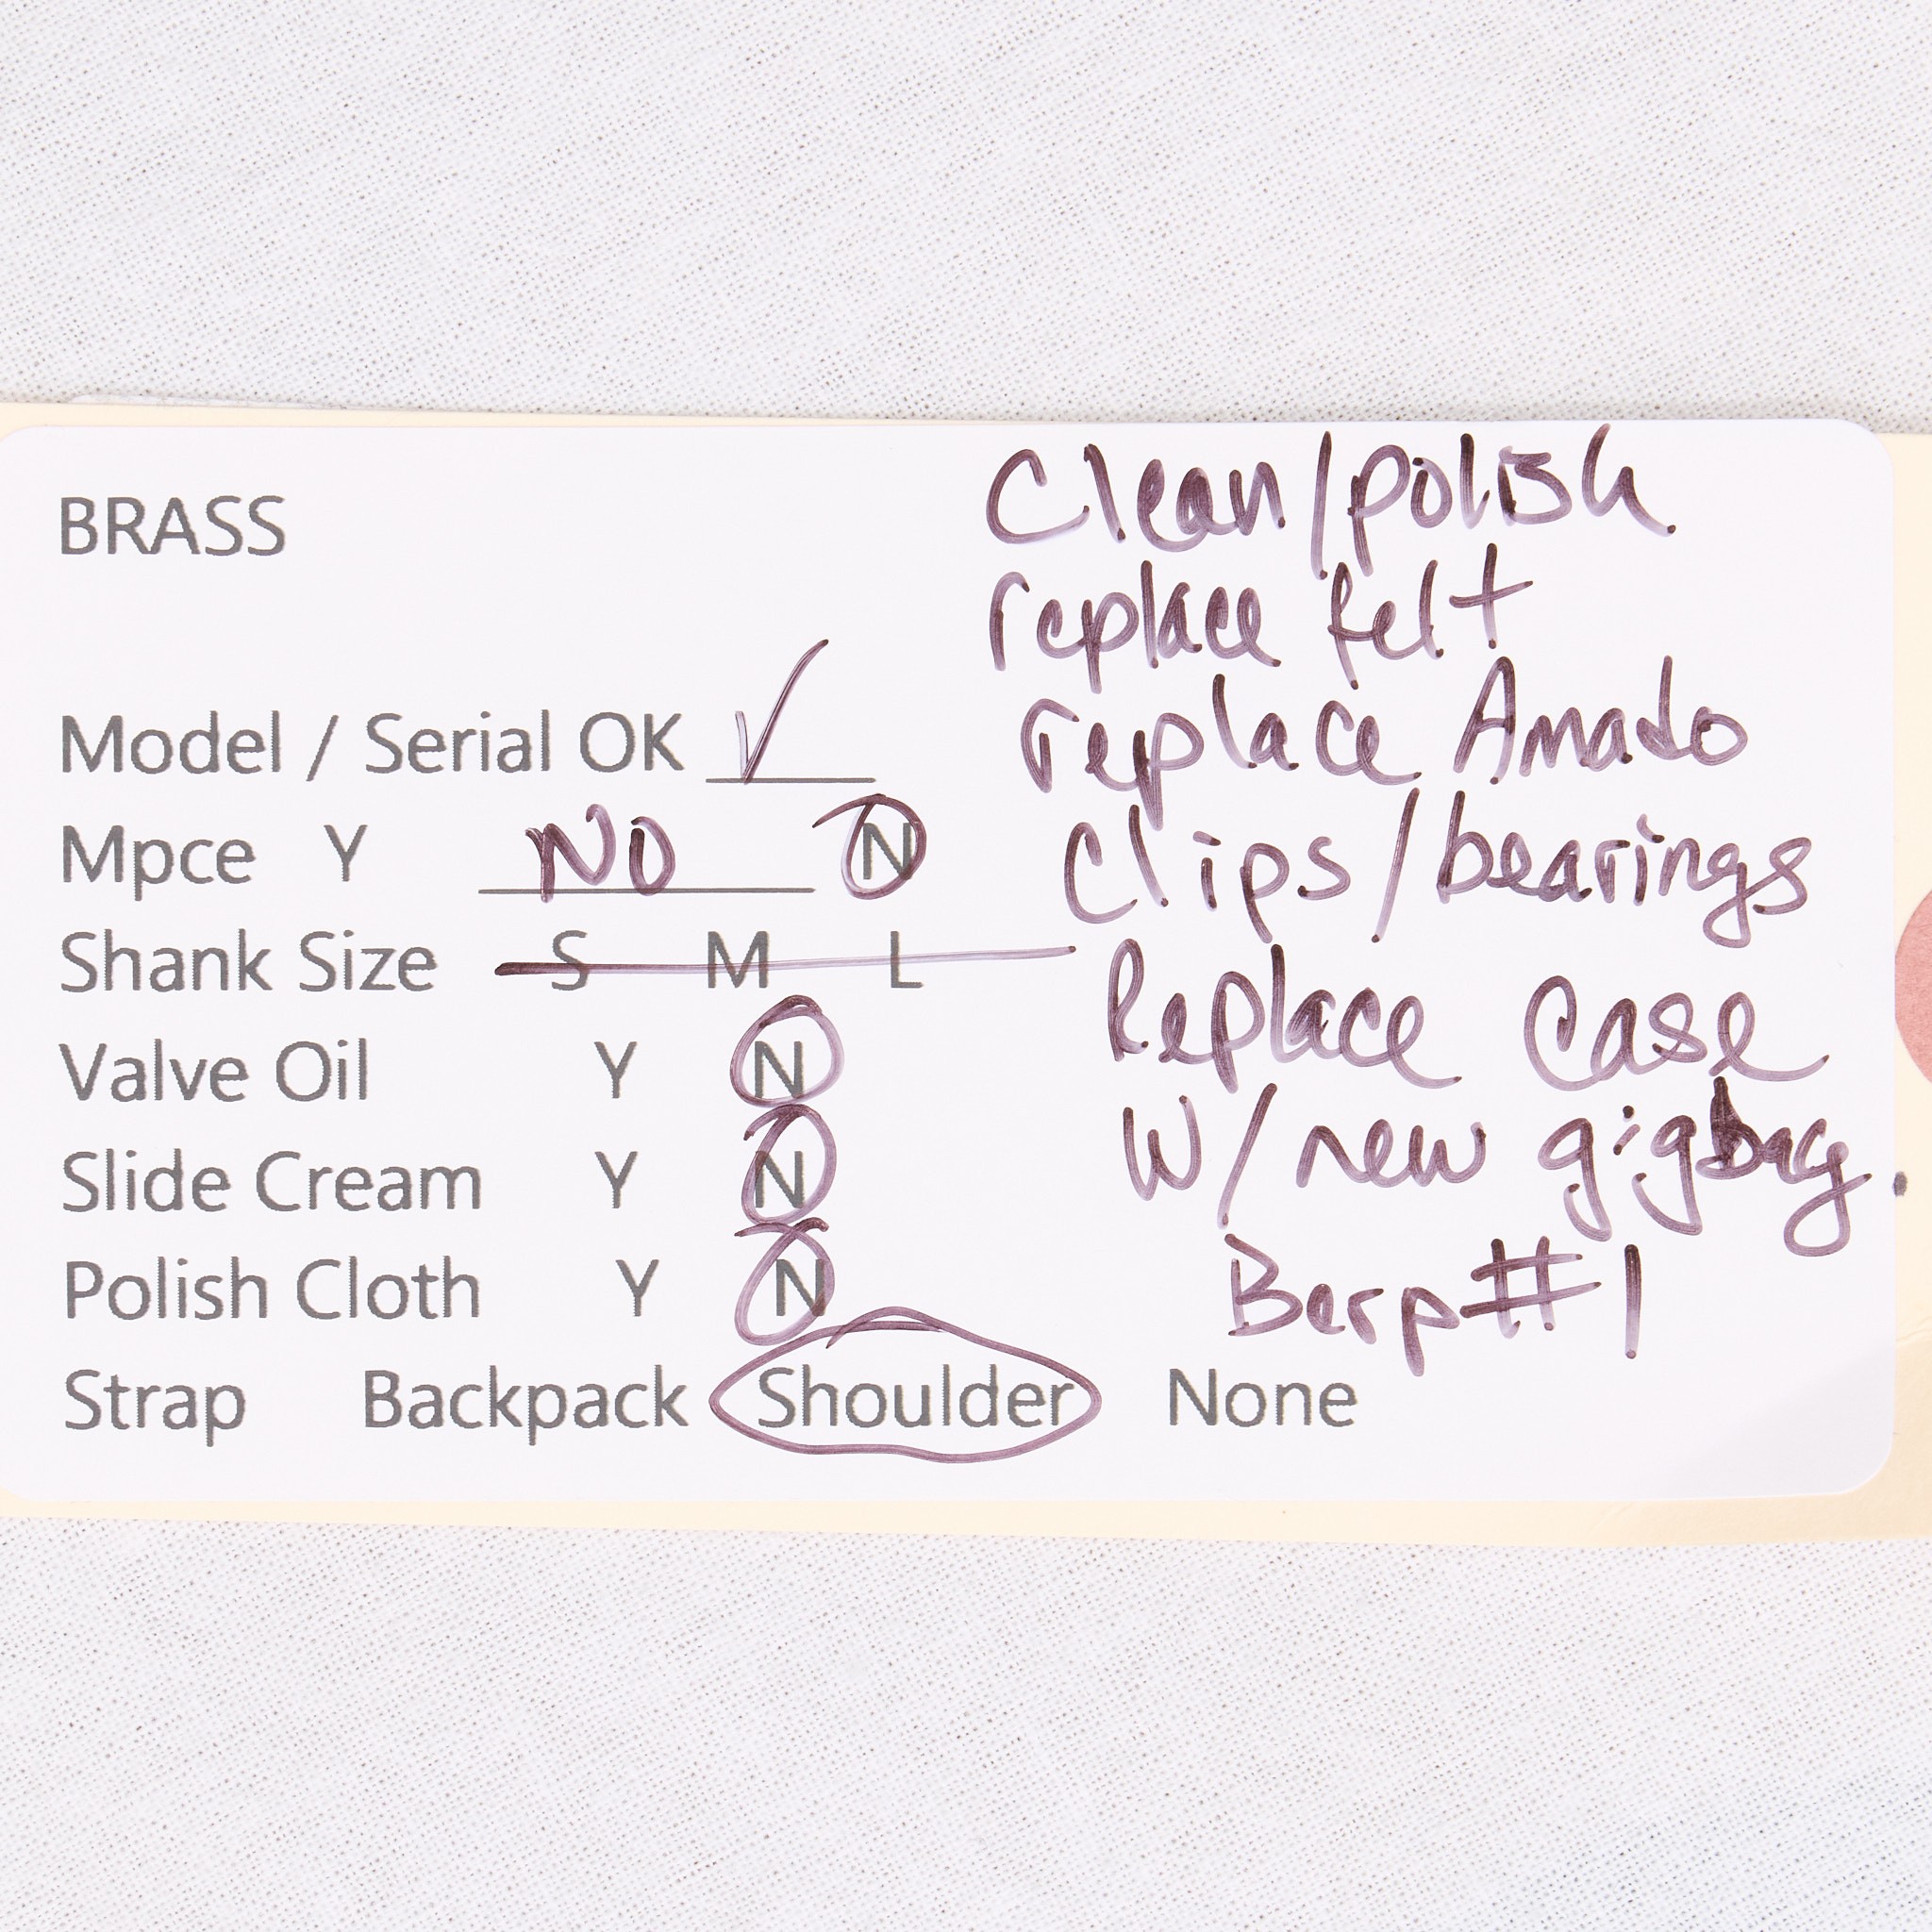 BRASS
Model / Serial OK ✓
Mpce Y NO N
Shank Size S M L
Valve Oil Y N
Slide Cream Y N
Polish Cloth Y N
Strap Backpack Shoulder None
Clean/polish
replace felt
replace Amado
Clips/bearings
Replace Case
w/new gigbag
Berp#1